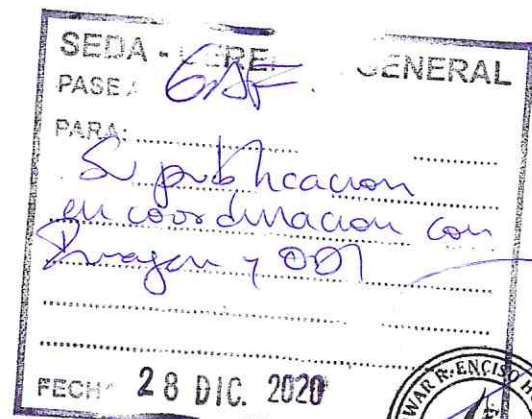 SEDA - GERE GENERAL
PASE: GAF.
PARA:
Su publicacion
en coordinacion con
Imagen y ODI
FECH 28 DIC. 2020
WAR R. ENCISO H